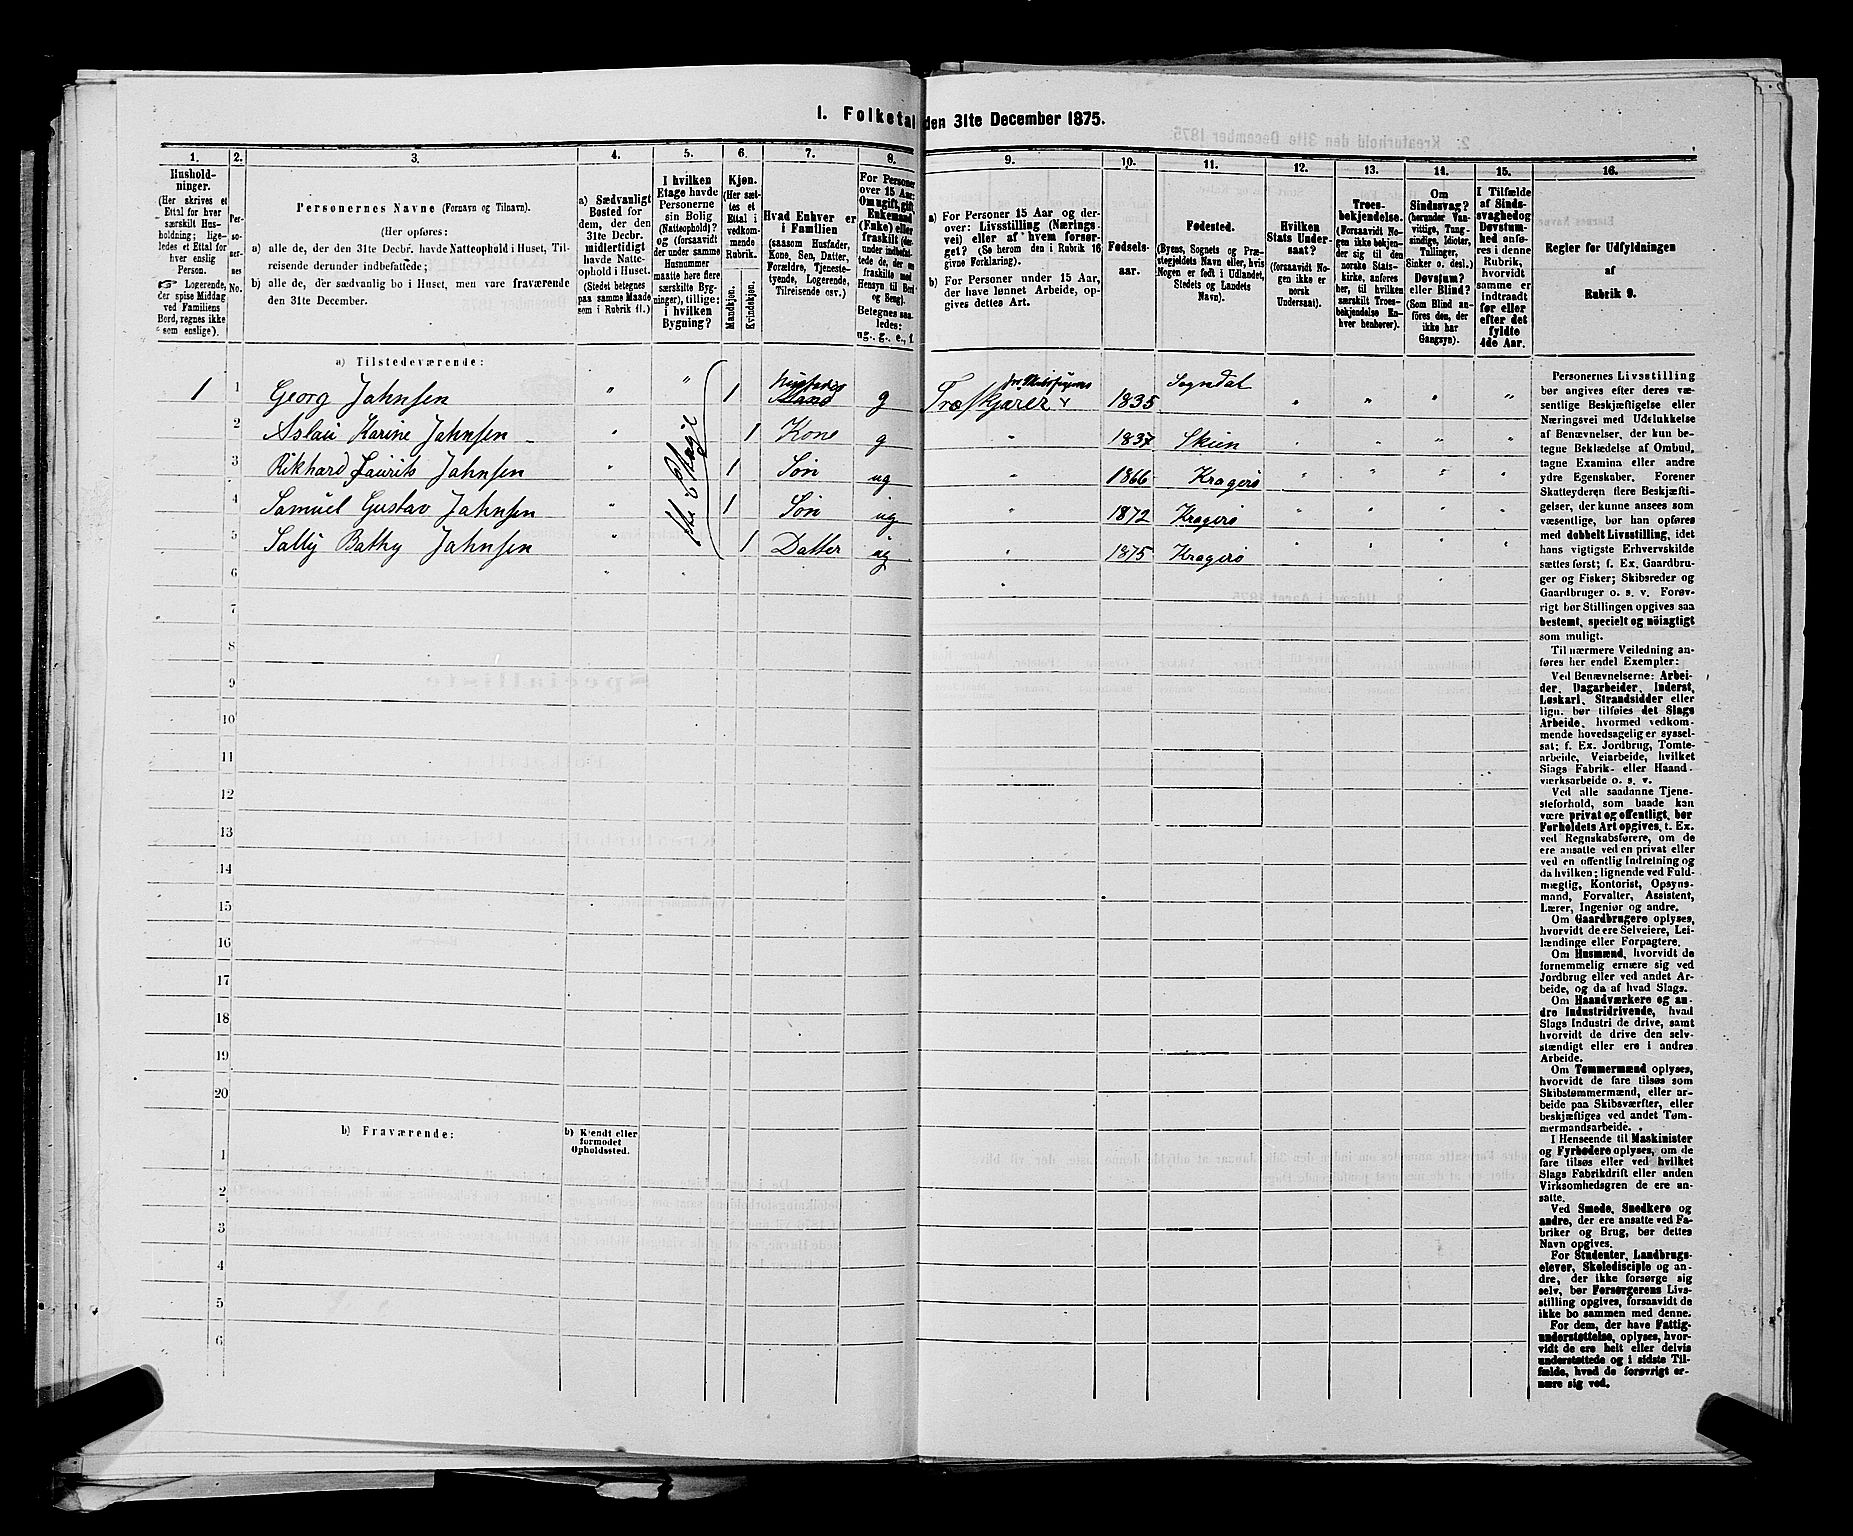 1. Folketal den 31te December 1875.
1. 2. 3. 4. 5. 6. 7. 8. 9. 10. 11. 12. 13. 14. 15. 16.
Hushold-
ninger.
(Her skrives et
Ettal for hver
særskilt Hus-
holdning; lige-
ledes et Ettal for
hver enslig
Person.
☞ Logerende,
der spise Middag
ved Familiens
Bord, regnes ikke
som enslige).
Per-
so-
ner-
nes
No.
Personernes Navne (Fornavn og Tilnavn).
(Her opføres:
a) alle de, der den 31te Decbr. havde Natteophold i Huset, Til-
reisende derunder indbefattede;
b) alle de, der sædvanlig bo i Huset, men vare fraværende
den 31te December.
a) Sædvanligt
Bosted for
dem, der den
31te Decbr.
midlertidigt
havde Natte-
ophold i Huset.
(Stedet betegnes
paa samme Maade
som i Rubrik 11.)
I hvilken
Etage havde
Personerne
sin Bolig
(Natteophold)?
og (forsaavidt
der under samme
Husnummer
maatte høre flere
særskilte Byg-
ninger), tillige:
i hvilken
Bygning?
Kjøn.
(Her sæt-
tes et
Ettal i
vedkom-
mende
Rubrik.
Mandkjøn.
Kvindekjøn.
Hvad Enhver er
i Familien
(saasom Husfader,
Kone, Søn, Datter,
Forældre, Tjeneste-
tyende, Logerende,
Tilreisende osv.)
For Personer
over 15 Aar:
Om ugift, gift
Enkemand
(Enke) eller
fraskilt (der-
under indbefat-
tede de, der ere
fraskilte med
Hensyn til Bord
og Seng).
Betegnes saa-
ledes:
ug., g., e., f.
a) For Personer 15 Aar og der-
over: Livsstilling (Nærings-
vei) eller af hvem forsør-
get? (Se herom den i Rubrik 16
givne Forklaring).
b) For Personer under 15 Aar,
der have lønnet Arbeide, op-
gives dettes Art.
Fødsels-
aar.
Fødested.
(Byens, Sognets og Præ-
stegjeldets Navn eller, hvis
Nogen er født i Udlandet,
Stedets og Landets
Navn).
Hvilken
Stats Under-
saat?
(forsaavidt No-
gen ikke er
norsk
Undersaat).
Troes-
bekjendelse.
(Forsaavidt No-
gen ikke bekjen-
der sig til den
norske Stats-
kirke, anføres
her, til hvilken
særskilt Troes-
bekjendelse En-
hver henhører).
Om
Sindssvag?
(herunder Van-
vittige, Tung-
sindige, Idioter,
Tullinger,
Sinker o. desl.)
Døvstum?
eller Blind?
(Som Blind an-
føres den, der
ikke har
Gangsyn).
I Tilfælde
af Sinds-
svaghed og
Døvstum-
hed anfø-
res i denne
Rubrik,
hvorvidt
samme er
indtraadt
før eller
efter det
fyldte
4de Aar.
Regler for Udfyldningen
af
Rubrik 9.
a) Tilstedeværende:
1 1 Georg Jahnsen " " 1 Husfader g Træskjærer 1835 Sogndal " " " "
2 Aslau Karine Jahnsen " 1 Kone g " 1837 Skien " " " "
3 Rikhard Laurits Jahnsen " 1 Søn ug " 1866 Kragerø " " " "
4 Samuel Gustav Jahnsen " 1 Søn ug " 1872 Kragerø " " " "
5 Sally Bathy Jahnsen " 1 Datter ug " 1875 Kragerø " " " "
Etage
6
7
8
9
10
11
12
13
14
15
16
17
18
19
20
b) Fraværende:
b) Kjendt eller
formodet
Opholdssted.
1
2
3
4
5
6
Personernes Livsstilling
bør angives efter deres væ-
sentlige Beskjæftigelse eller
Næringsvei med Udelukkelse
af Benævnelser, der kun be-
tegne Beklædelse af Ombud,
tagne Examina eller andre
ydre Egenskaber. Forener
Skatteyderen flere Beskjæfti-
gelser, der kunne ansees som
væsentlige, bør han opføres
med dobbelt Livsstilling, idet
hans vigtigste Erhvervskilde
sættes først; f. Ex. Gaardbru-
ger og Fisker; Skibsreder og
Gaardbruger o. s. v. Forøv-
rigt bør Stillingen opgives saa
bestemt, specielt og nöiagtigt
som muligt.
Til nærmere Veiledning an-
føres her endel Exempler:
Ved Benævnelserne: Arbei-
der, Dagarbeider, Inderst,
Løskarl, Strandsidder eller
lign. bør tilføies det Slags
Arbeide, hvormed vedkom-
mende hovedsagelig er syssel-
sat; f. Ex. Jordbrug, Tomte-
arbeide, Veiarbeide, hvilket
Slags Fabrik- eller Haand-
værksarbeide o. s. v.
Ved alle saadanne Tjene-
steforhold, som baade kan
være privat og offentligt, bør
Forholdets Art opgives, t. Ex.
ved Regnskabsførere, om de
ere ansatte ved en privat eller
ved en offentlig Indretning og
da hvilken; lignende ved Fuld-
mægtig, Kontorist, Opsyns-
mand, Forvalter, Assistent,
Lærer, Ingeniør og andre.
Om Gaardbrugere oplyses,
hvorvidt de ere Selveiere, Lei-
lændinge eller Forpagtere.
Om Husmænd, hvorvidt de
fornemmelig ernære sig ved
Jordbrug eller ved andet Ar-
beide, og da af hvad Slags.
Om Haandværkere og an-
dre Industridrivende, hvad
Slags Industri de drive, samt
hvorvidt de drive den selv-
stændigt eller ere i andres
Arbeide.
Om Tømmermænd oplyses,
hvorvidt de fare tilsøs som
Skibstømmermænd, eller ar-
beide paa Skibsværfter, eller
beskjæftiges ved andet Tøm-
mermandsarbeide.
I Henseende til Maskinister
og Fyrbødere oplyses, om de
fare tilsøs eller ved hvilket
Slags Fabrikdrift eller anden
Virksomhedsgren de ere an-
satte.
Ved Smede, Snedkere og
andre, der ere ansatte ved Fa-
briker og Brug, bør dettes
Navn opgives.
For Studenter, Landbrugs-
elever, Skoledisciple og an-
dre, der ikke forsørge sig
selv, bør Forsørgerens Livs-
stilling opgives, forsaavidt de
ikke bo sammen med denne.
For dem, der have Fattig-
understøttelse, oplyses, hvor-
vidt de ere helt eller delvis
understøttede og i sidste Til-
fælde, hvad de forøvrigt er-
nære sig ved.